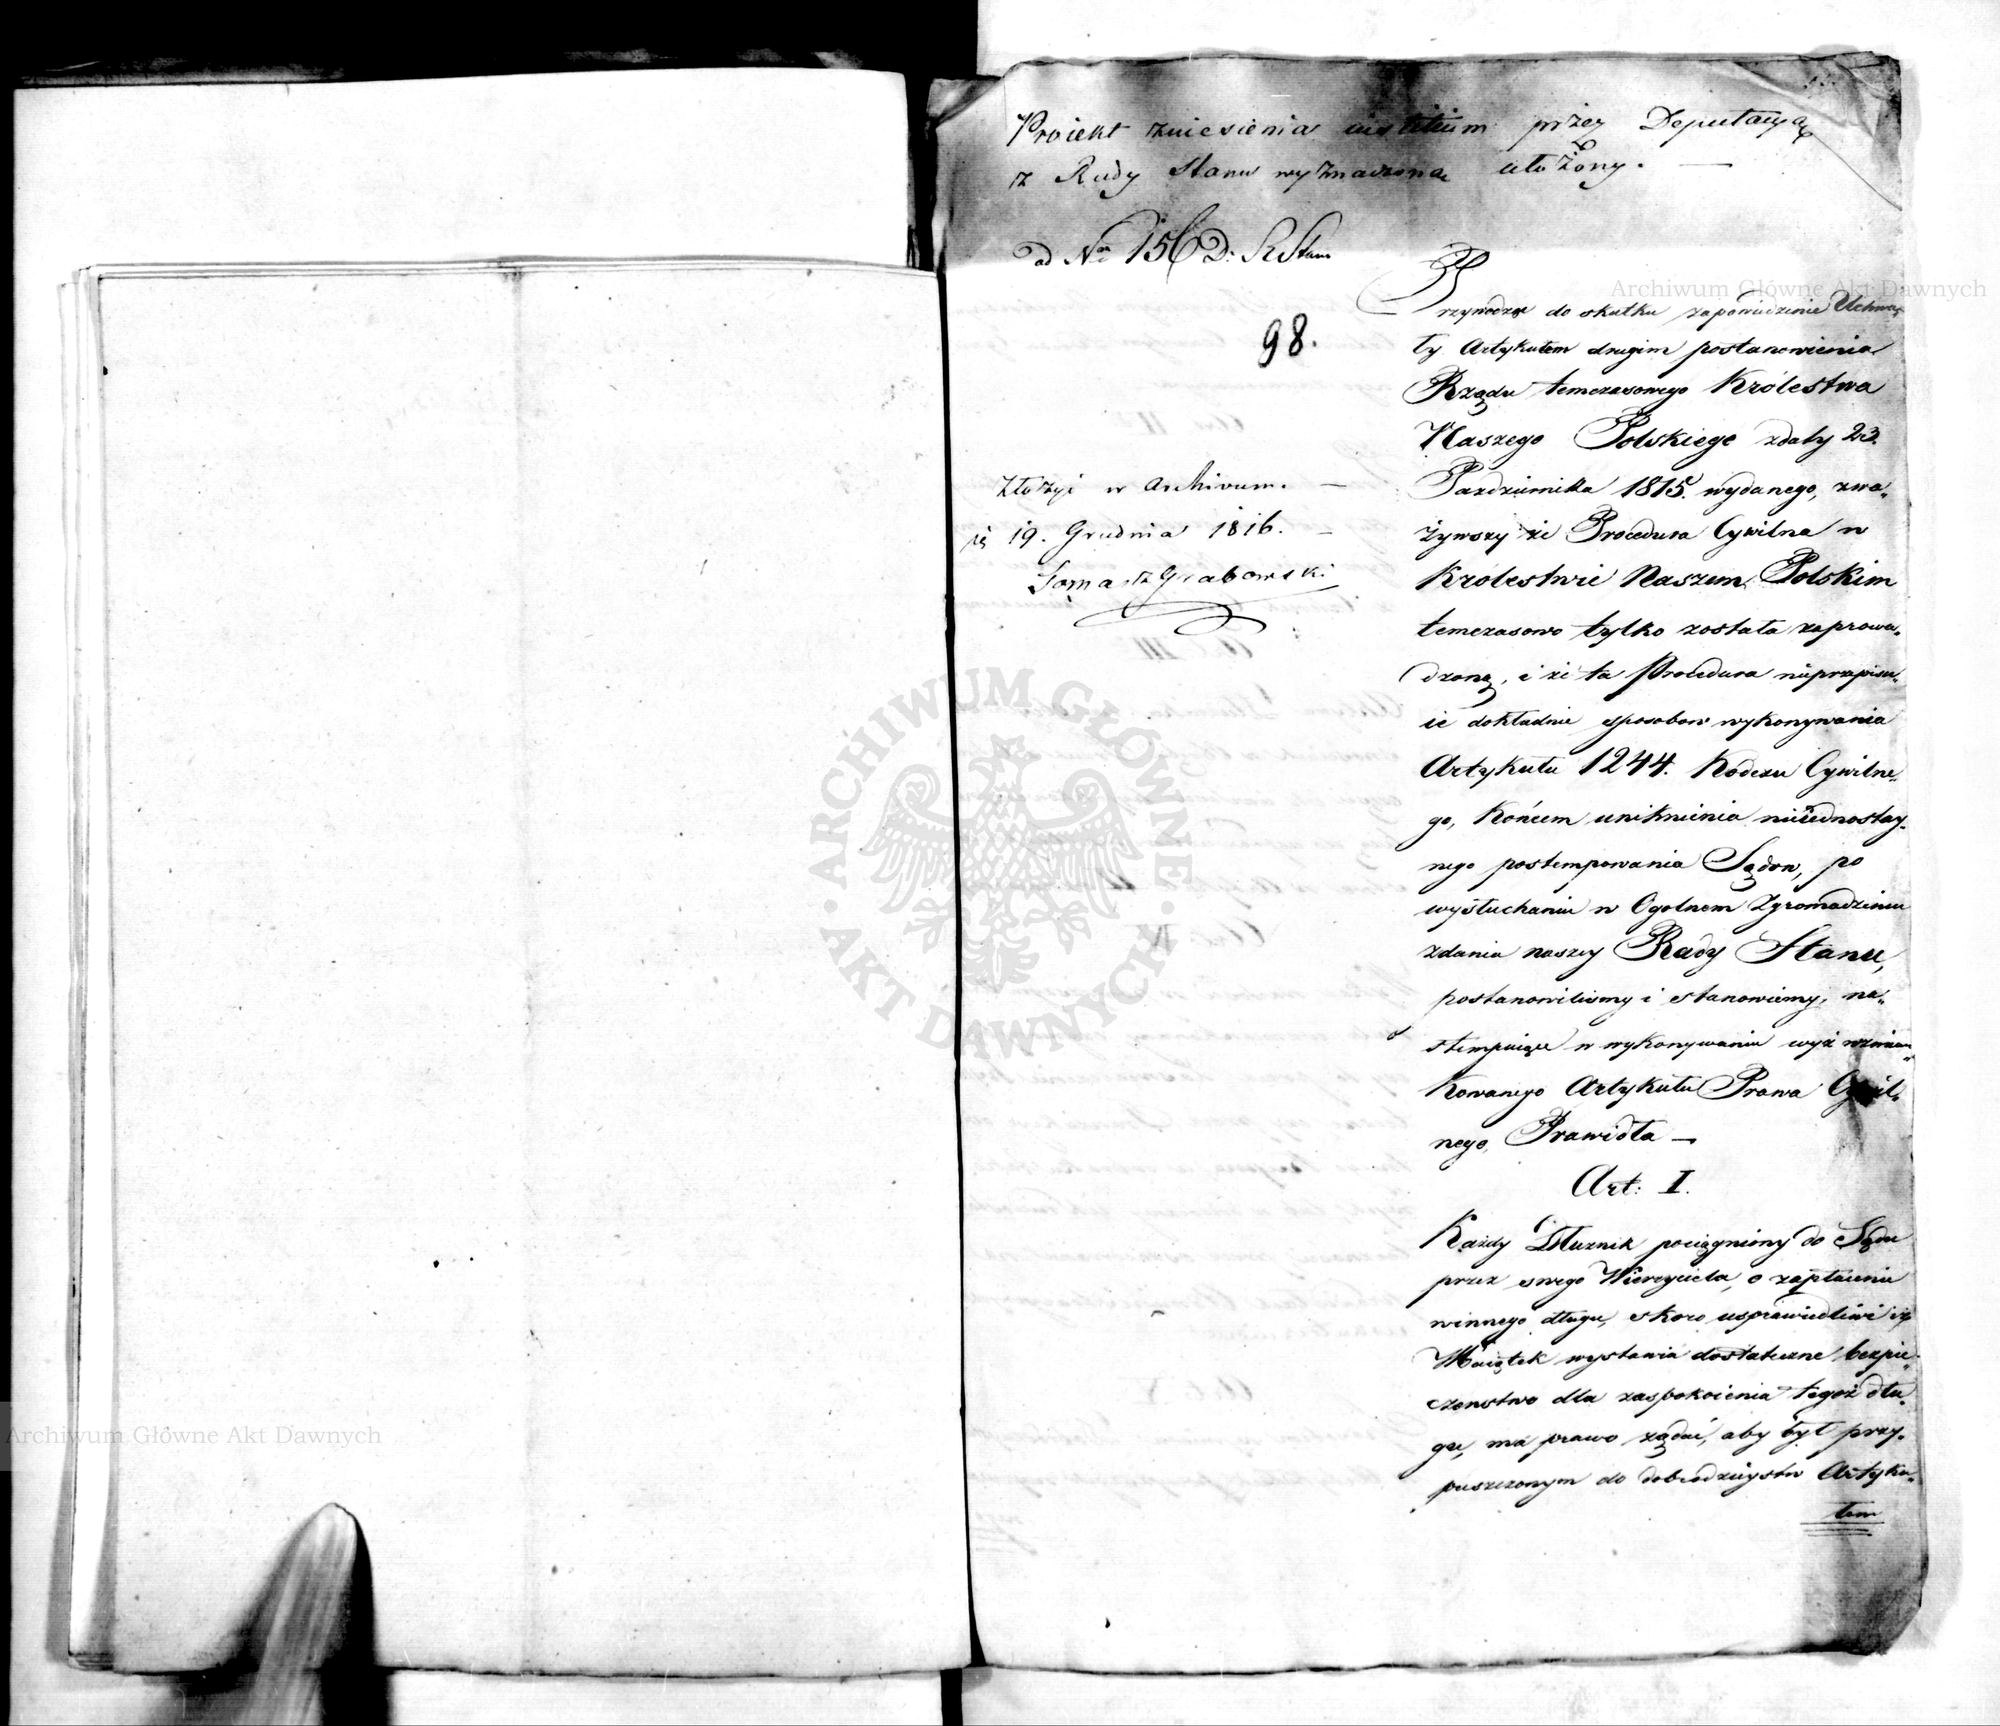 Proiekt zniesienia iustitium przez Deputacyą
z Rady Stanu wyznaczoną ułożony. —
ad Nr 156 D: R Stanu
98.
Złożyć w Archivum. —
19. Grudnia 1816. —
Tomasz Grabowski
Przywodząc do skutku zapowiedzenie Uchwa„
ły Artykułem drugim postanowienia
Rządu temczasowego Królestwa
Naszego Polskiego zdaty 23.
Pazdziernika 1815. wydanego, zwa„
żywszy że Procedura Cywilna w
Królestwie Naszem Polskim
temczasowo tylko została zaprowa„
dzoną, i że ta Procedura nieprzepisu„
ie dokładnie sposobow wykonywania
Artykułu 1244. Kodexu Cywilne„
go, Końcem uniknienia nieiednostay„
nego postempowania Sądow, po
wysłuchaniu w Ogolnem Zgromadzeniu
zdania naszey Rady Stanu,
postanowiliśmy i stanowiemy, na„
stempuiące w wykonywaniu wyż wzmian„
kowanego Artykułu Prawa Cywil„
nego, Prawidła —
Art: I.
Każdy Dłużnik pociągniony do Sądu
przez swego Wierzyciela, o zapłacenie
winnego długu, skoro usprawiedliwi iż
Maiątek wystawia dostateczne bezpie„
czenstwo dla zaspokoienia tegoż dłu„
gu, ma prawo żądać, aby był przy„
puszczonym do dobrodzieystw Artyku„
łem
Archiwum Główne Akt Dawnych
ARCHIWUM GŁÓWNE AKT DAWNYCH
Archiwum Główne Akt Dawnych